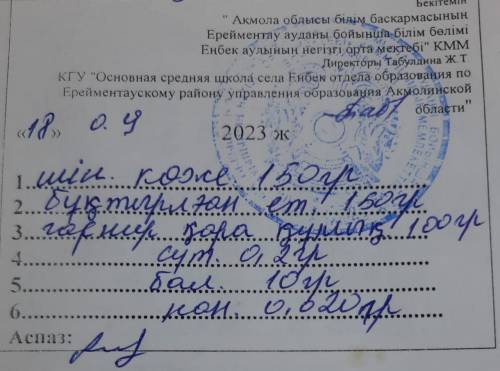 Бекітемін
" Ақмола облысы білім басқармасының
Ерейментау ауданы бойынша білім бөлімі
Еңбек аулының негізгі орта мектебі" КММ
Директоры Табулдина Ж.Т
КГУ "Основная средняя школа села Енбек отдела образования по
Ерейментаускому району управления образования Акмолинской
области"
«18» 0.9 2023 ж
1. шін. көже 150гр
2. бұқтырлған ет. 150гр
3. гарнир қара құмық 100гр
4. сүт. 0,2гр
5. бал. 10гр
6. нан. 0,020гр
Аспаз: